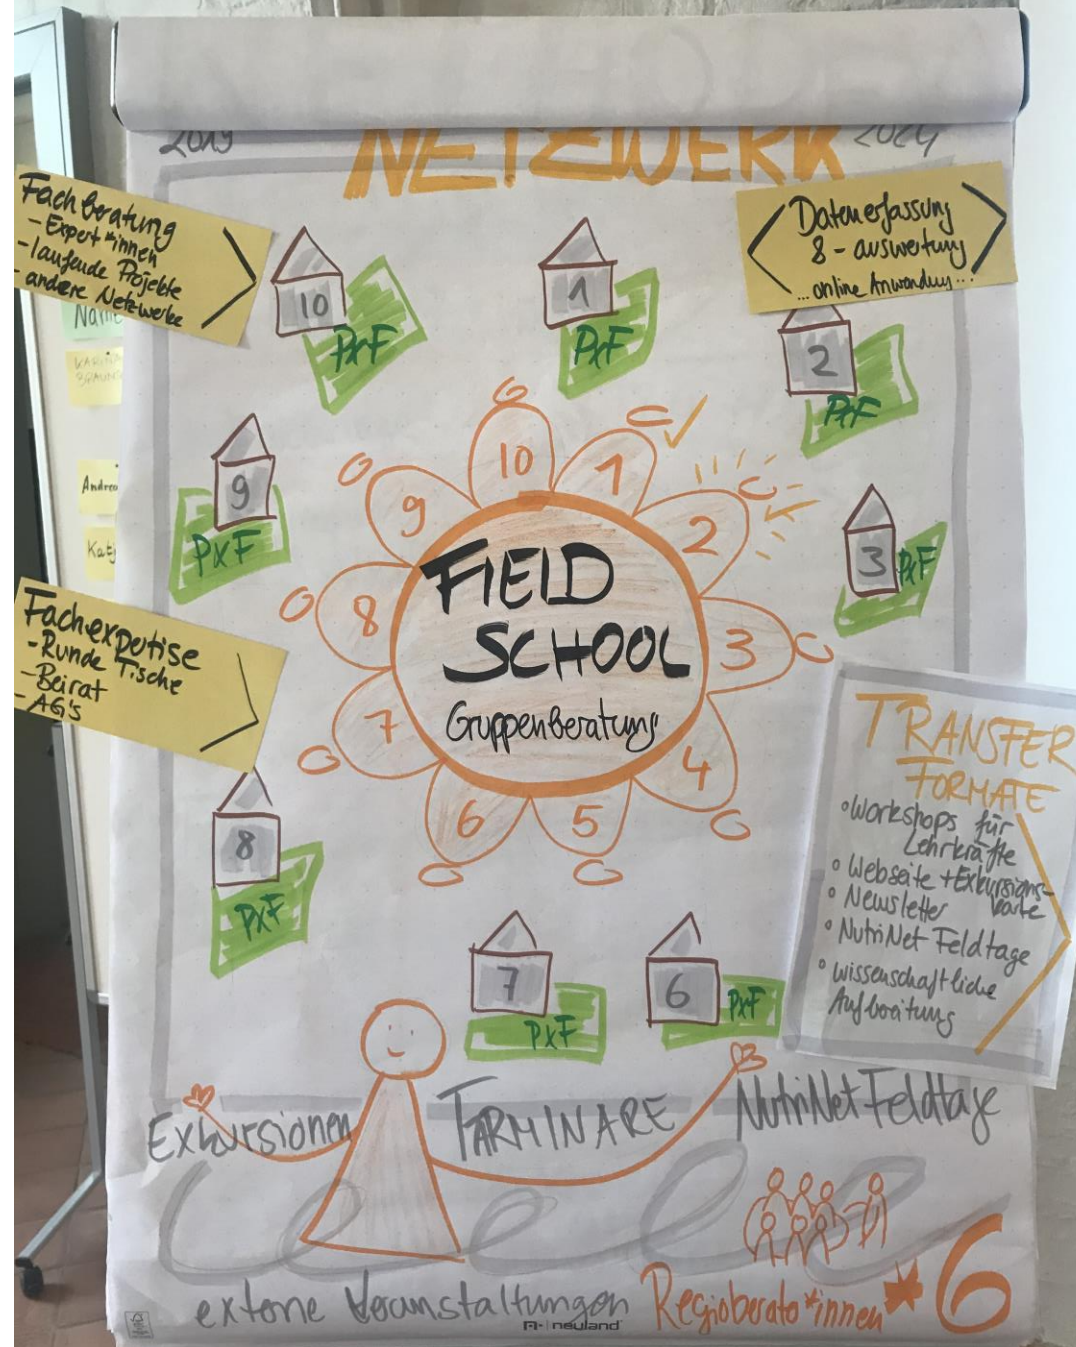 2019
NETZWERK
2024
Fachberatung
- Expert*innen
- laufende Projekte
- andere Netzwerke
Datenerfassung
& - auswertung
... online Anwendung...
Name
Andrea
Katj
10
PxF
1
PxF
2
PxF
9
PxF
3
PxF
10
1
2
3
4
5
6
7
8
9
FIELD
SCHOOL
Gruppenberatung
Fachexpertise
- Runde Tische
- Beirat
- AG's
8
PxF
7
PxF
6
PxF
TRANSFER
FORMATE
° Workshops für
Lehrkräfte
° Webseite + Exkursions-
karte
° Newsletter
° NutriNet Feldtage
° wissenschaftliche
Aufbereitung
Exkursionen
FARMINARE
NutriNet Feldtage
externe Veranstaltungen
Regioberater*innen * 6
neuland